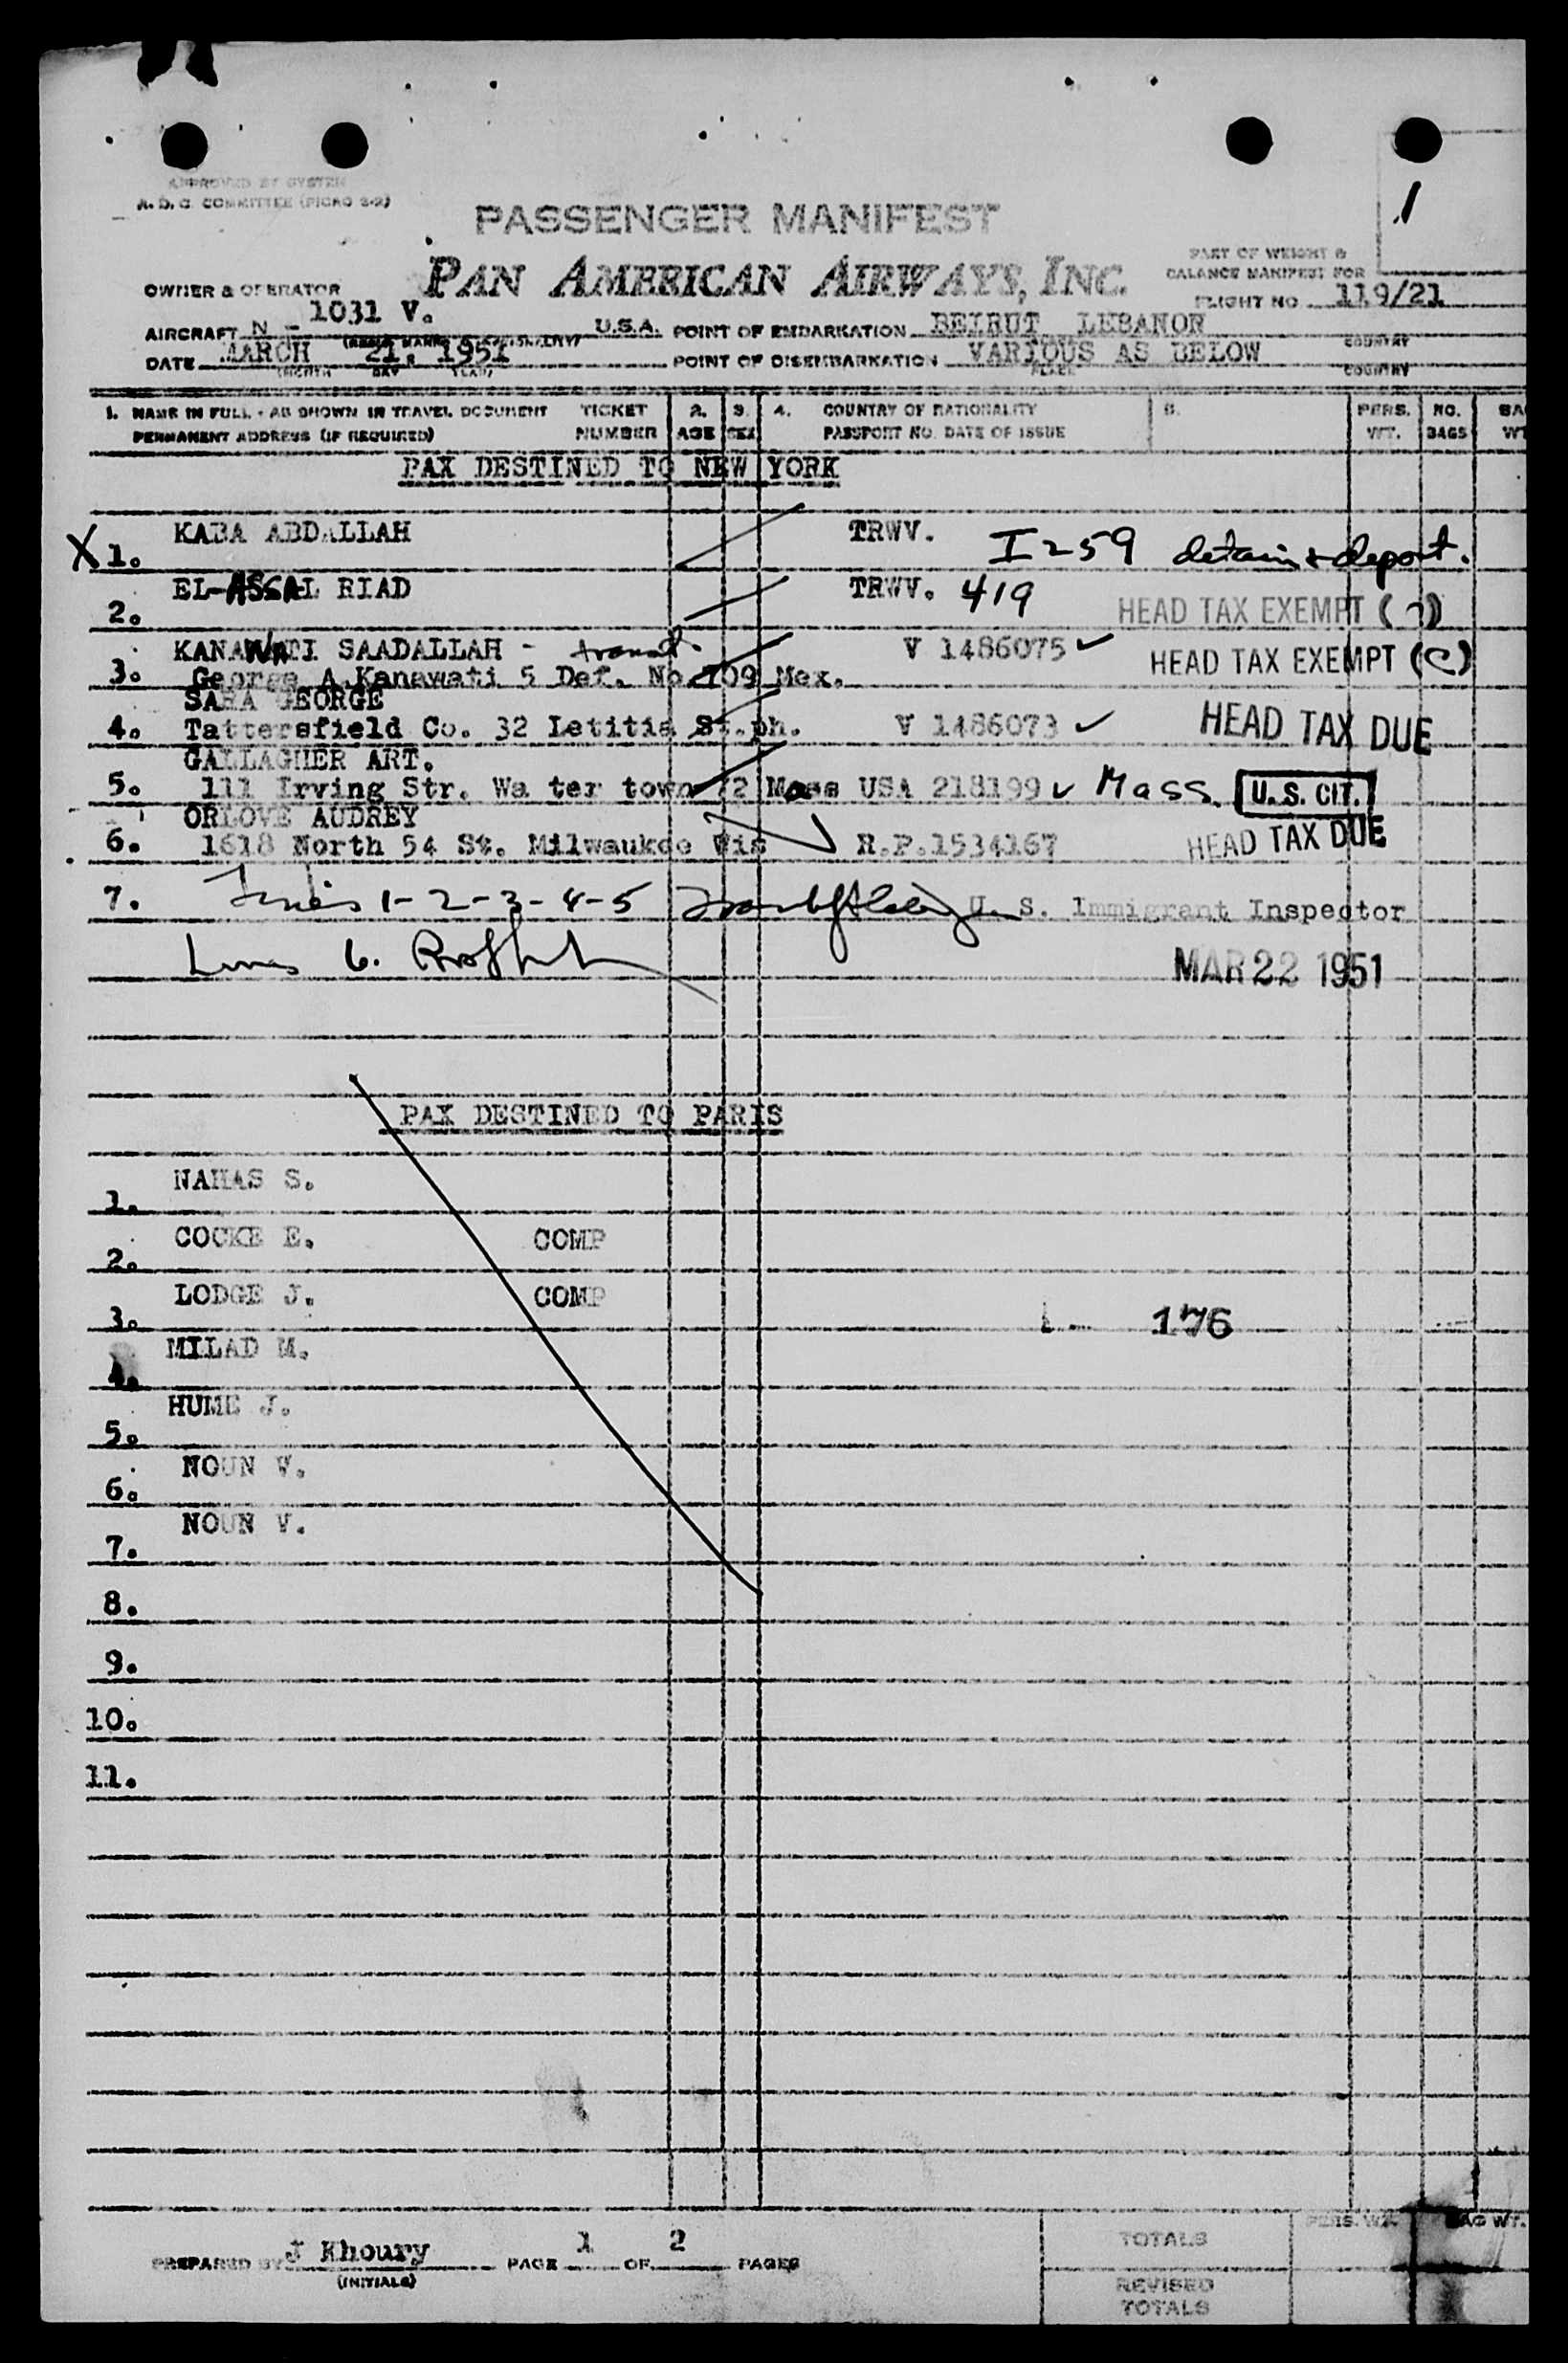 APPROVED BY SYSTEM
A. D. C. COMMITTEE (PICAO 2-2)
1
PASSENGER MANIFEST
PAN AMERICAN AIRWAYS, INC.
PART OF WEIGHT &
BALANCE MANIFEST FOR
FLIGHT NO 119/21
OWNER & OPERATOR
AIRCRAFT N - 1031 V. U.S.A. POINT OF EMBARKATION BEIRUT LEBANON
COUNTRY
DATE MARCH 21. 1951 POINT OF DISEMBARKATION VARIOUS AS BELOW
(MONTH DAY YEAR) PLACE COUNTRY
1. NAME IN FULL - AS SHOWN IN TRAVEL DOCUMENT TICKET 2. 3. 4. COUNTRY OF NATIONALITY PERS. NO. BA
PERMANENT ADDRESS (IF REQUIRED) NUMBER AGE SEX PASSPORT NO. DATE OF ISSUE WT. BAGS WT
PAX DESTINED TO NEW YORK
X 1. KABA ABDALLAH TRWV. I 259 detain & deport.
2. EL-ASSAL RIAD TRWV. 419 HEAD TAX EXEMPT
3. KANAWATI SAADALLAH - transit V 1486075 ✓ HEAD TAX EXEMPT (C)
George A.Kanawati 5 Def. No 709 Mex.
SABA GEORGE
4. Tattersfield Co. 32 Letitia St.ph. V 1486073 ✓ HEAD TAX DUE
GALLAGHER ART.
5. 111 Irving Str. Wa ter town 72 Mass USA 218199 ✓ Mass. U.S. CIT.
ORLOVE AUDREY
6. 1618 North 54 St. Milwaukee Wis R.P.1534167 HEAD TAX DUE
7. Lines 1-2-3-4-5 U. S. Immigrant Inspector
Lines 6. MAR 22 1951
PAX DESTINED TO PARIS
1. NAHAS S.
2. COCKE E. COMP
3. LODGE J. COMP 176
4. MILAD M.
5. HUME J.
6. NOUN V.
7. NOUN V.
8.
9.
10.
11.
PREPARED BY J Khoury PAGE 1 OF 2 PAGES
(INITIALS)
TOTALS PERS. WT. BAG WT.
REVISED
TOTALS